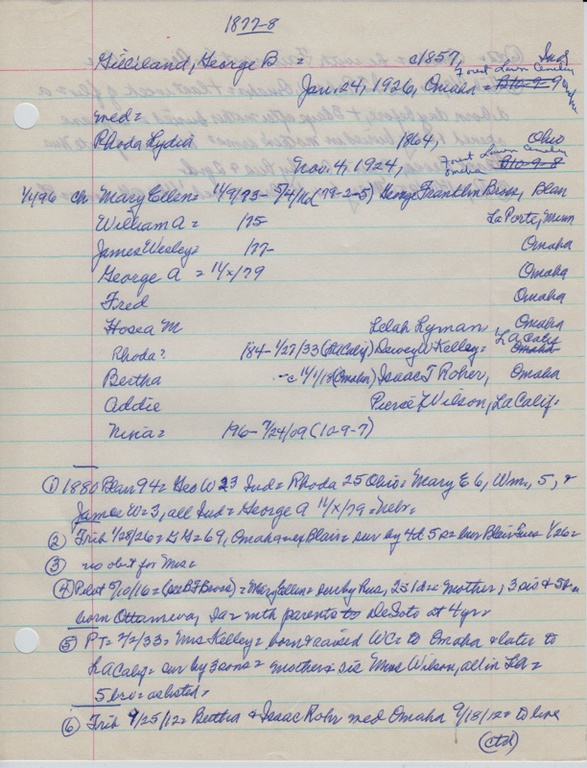 1877-8
Gilliland, George B = c1857, Ind
Jan. 24, 1926, Omaha = Forest Lawn Cemetery B10-9-9
med =
Rhoda Lydia 1864, Ohio
Nov. 4, 1924, Forest Lawn Cemetery Omaha B10-9-8
ch Mary Ellen = George Franklin Bross, Blair
William A = 175 LaPorte, Minn
James Wesley = 177- Omaha
George A = 1/x/79 Omaha
Fred Omaha
Hosea M Lelah Lyman, Omaha
Rhoda? 184- 1/27/33 (LA Calif) Dewey W Kelley = LA Calif Omaha
Bertha (Omaha) Isaac T Roher, Omaha
Addie Pierce F Wilson, LA Calif.
Nina = 196- 7/24/09 (10-9-7)
① 1880 Blair 94 = Geo W 23 Ind = Rhoda 25 Ohio = Mary E 6, Wm, 5, &
James W = 3, all Ind = George A 1/x/79 = Nebr =
② Trib 1/28/26 = GG = 69, Omaha = Blair = sur by 4d 5s = bur Blair 1/26 =
③ no obit for Mrs =
④ Pilot 5/10/16 = = Mary Ellen = sur by hus, 2s 1d = mother, 3 sis & 5 bro
born Ottumwa, Ia = with parents to DeSoto at 4 yr =
⑤ PT = 2/2/33 = Mrs Kelley = born & raised WC = to Omaha & later to
LA Calif = sur by 3 sons = mother = sis Mrs Wilson, all in LA =
5 bro = as listed =
⑥ Trib 9/25/12 = Bertha & Isaac Rohr med Omaha 9/18/12 = to live
(ctd)